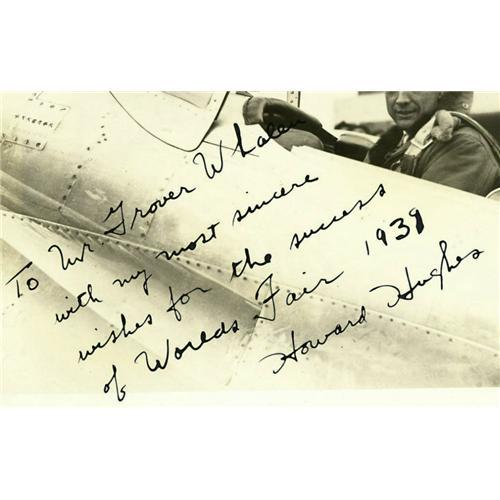 To Mr. Grover Whalen
with my most sincere
wishes for the success
of Worlds Fair 1939
Howard Hughes